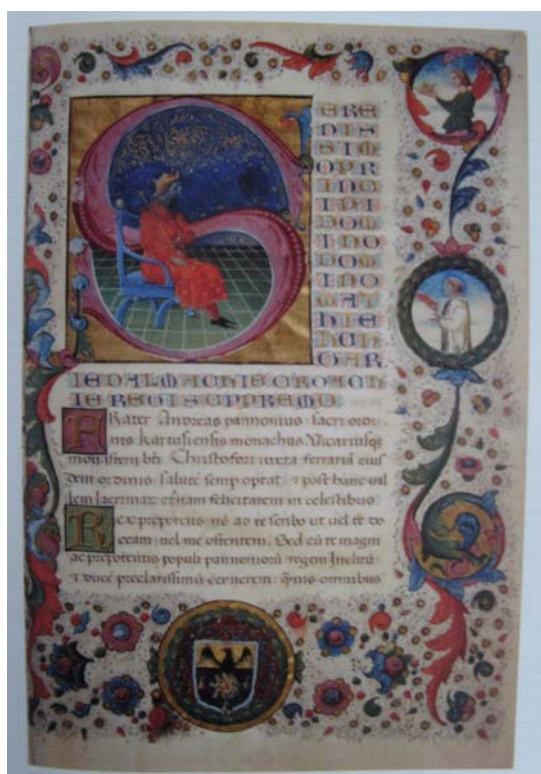 SERE
NIS
SIM
OPR
INC
IPI
DOM
INO
DOM
INO
MAT
HIE
HUN
GAR
IE DALMACHIE CROACH
IE REGI SUPPREMO
FRater Andreas pannonius sacri ordi
nis Kartusiensis monachus Vicariusq
bti Christofori iuxta ferrariā eius
dem ordinis Salutē semp optat et post hanc val
lem lacrimaꝝ etnam felicitatem in celestibus
REx prepotens nō ad te scribo ut uel te do
ceam uel me ostentem. Sed cū te magni
ac prepotentis populi pannonioꝝ regem Inclitū
et ducē preclarissimū cernerem omnibus